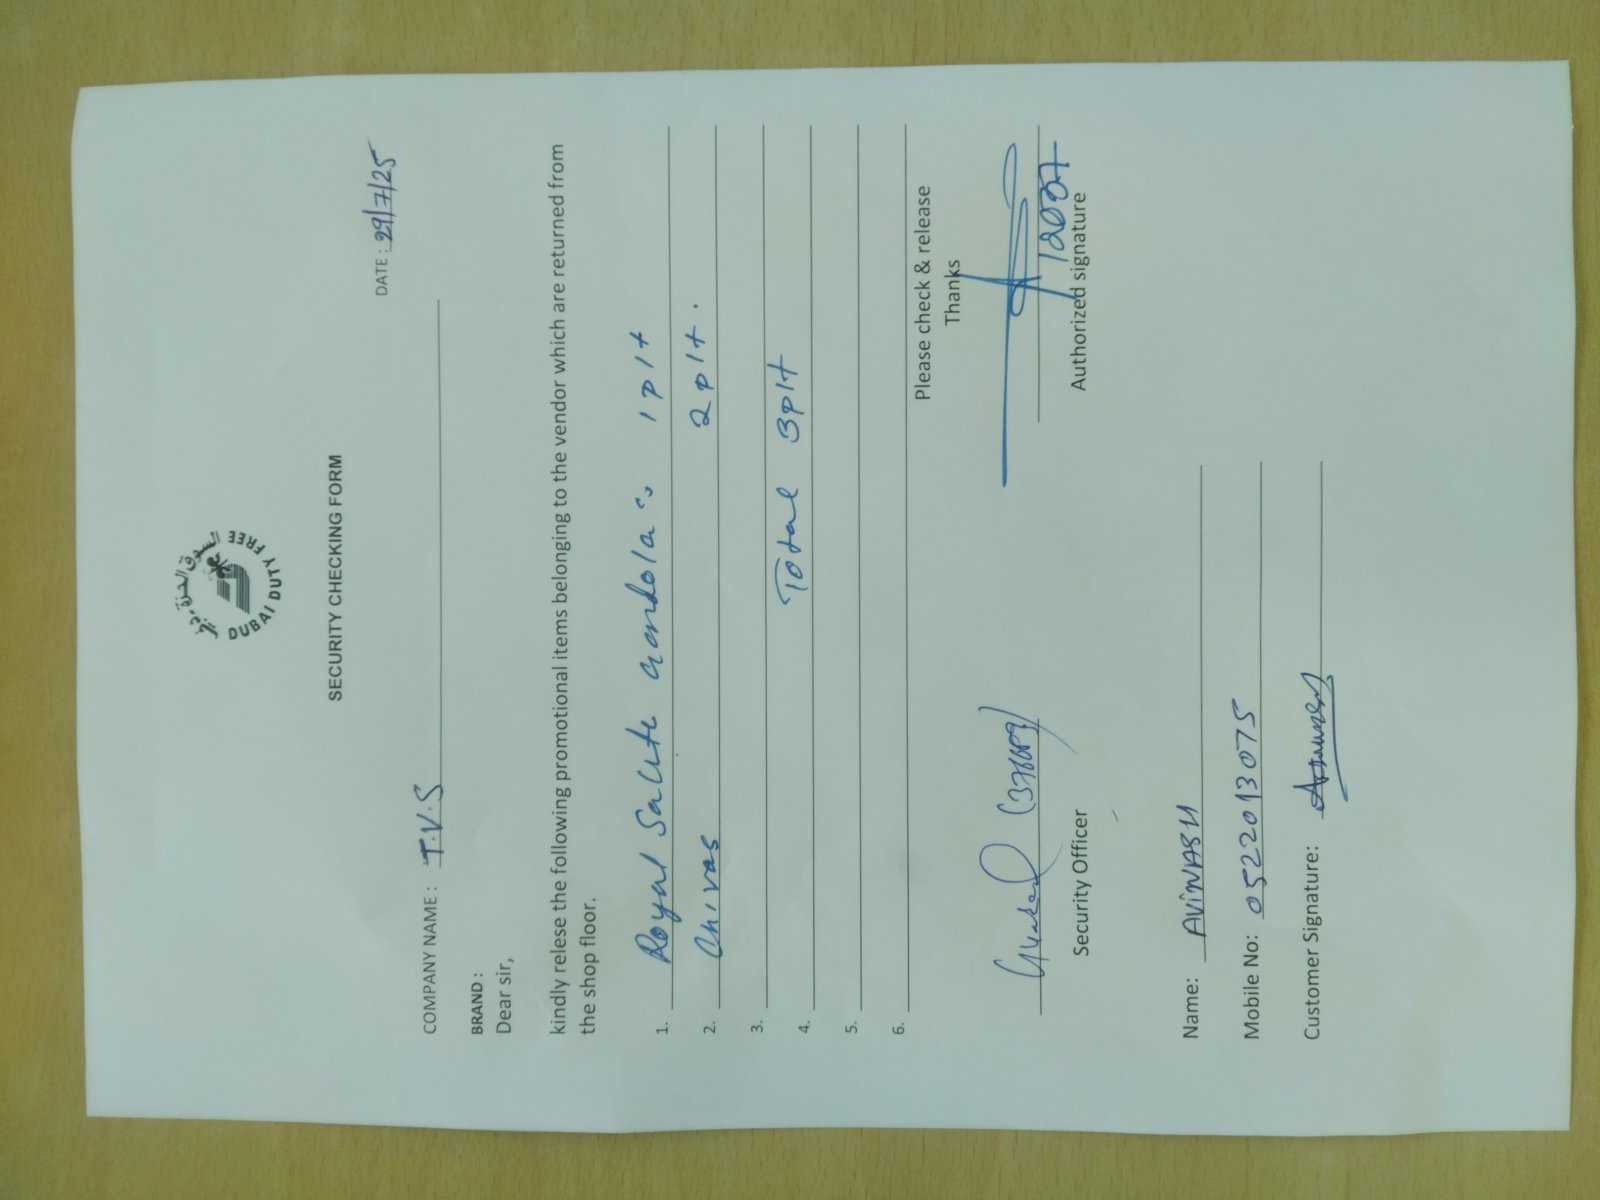 السوق الحرة دبي
DUBAI DUTY FREE
SECURITY CHECKING FORM
DATE : 29/7/25
COMPANY NAME : T.V.S
BRAND :
Dear sir,
kindly relese the following promotional items belonging to the vendor which are returned from
the shop floor.
1. Royal Salute Gondola 1 plt
2. Chivas 2 plt.
3. Total 3plt
4.
5.
6.
Please check & release
Thanks
12007
Security Officer
Authorized signature
Name: AVINASH
Mobile No: 0522013075
Customer Signature: